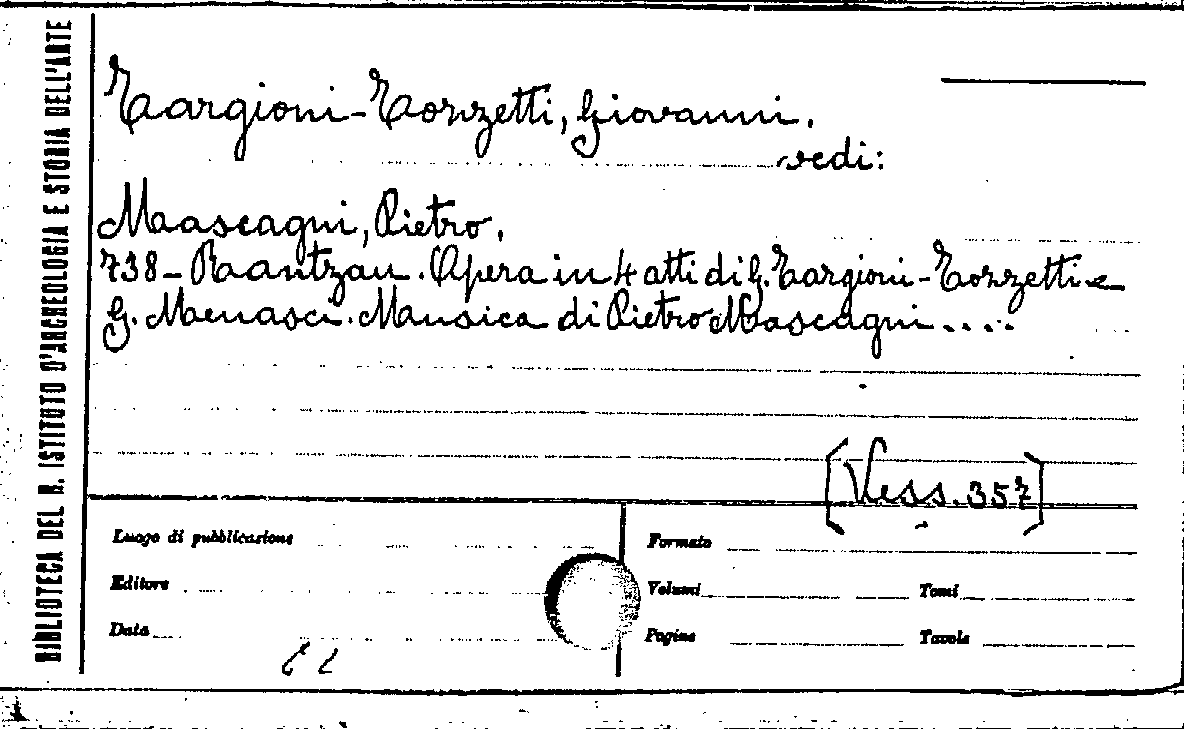 BIBLIOTECA DEL R. ISTITUTO D'ARCHEOLOGIA E STORIA DELL'ARTE
Targioni-Tozzetti, Giovanni.
vedi:
Mascagni, Pietro.
738- Rantzau. Opera in 4 atti di G. Targioni-Tozzetti e
G. Menasci. Musica di Pietro Mascagni....
[Vess. 357]
Luogo di pubblicazione
Formato
Editore
Volumi
Tomi
Data
Pagine
Tavole